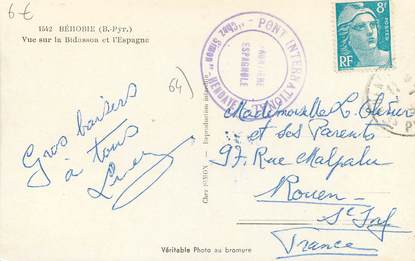 6€
1542 BÉHOBIE (B.-Pyr.)
Vue sur la Bidassoa et l'Espagne
64)
PONT INTERNATIONAL
"Chez Simon" - HENDAYE
FRONTIÈRE
ESPAGNOLE
8F
POSTES
RF
Gros baisers
à tous
Chez SIMON — Reproduction interdite
Mademoiselle L.
et ses Parents
97, Rue Malpalu
Rouen
Sᵉ Inf
France
Véritable Photo au bromure